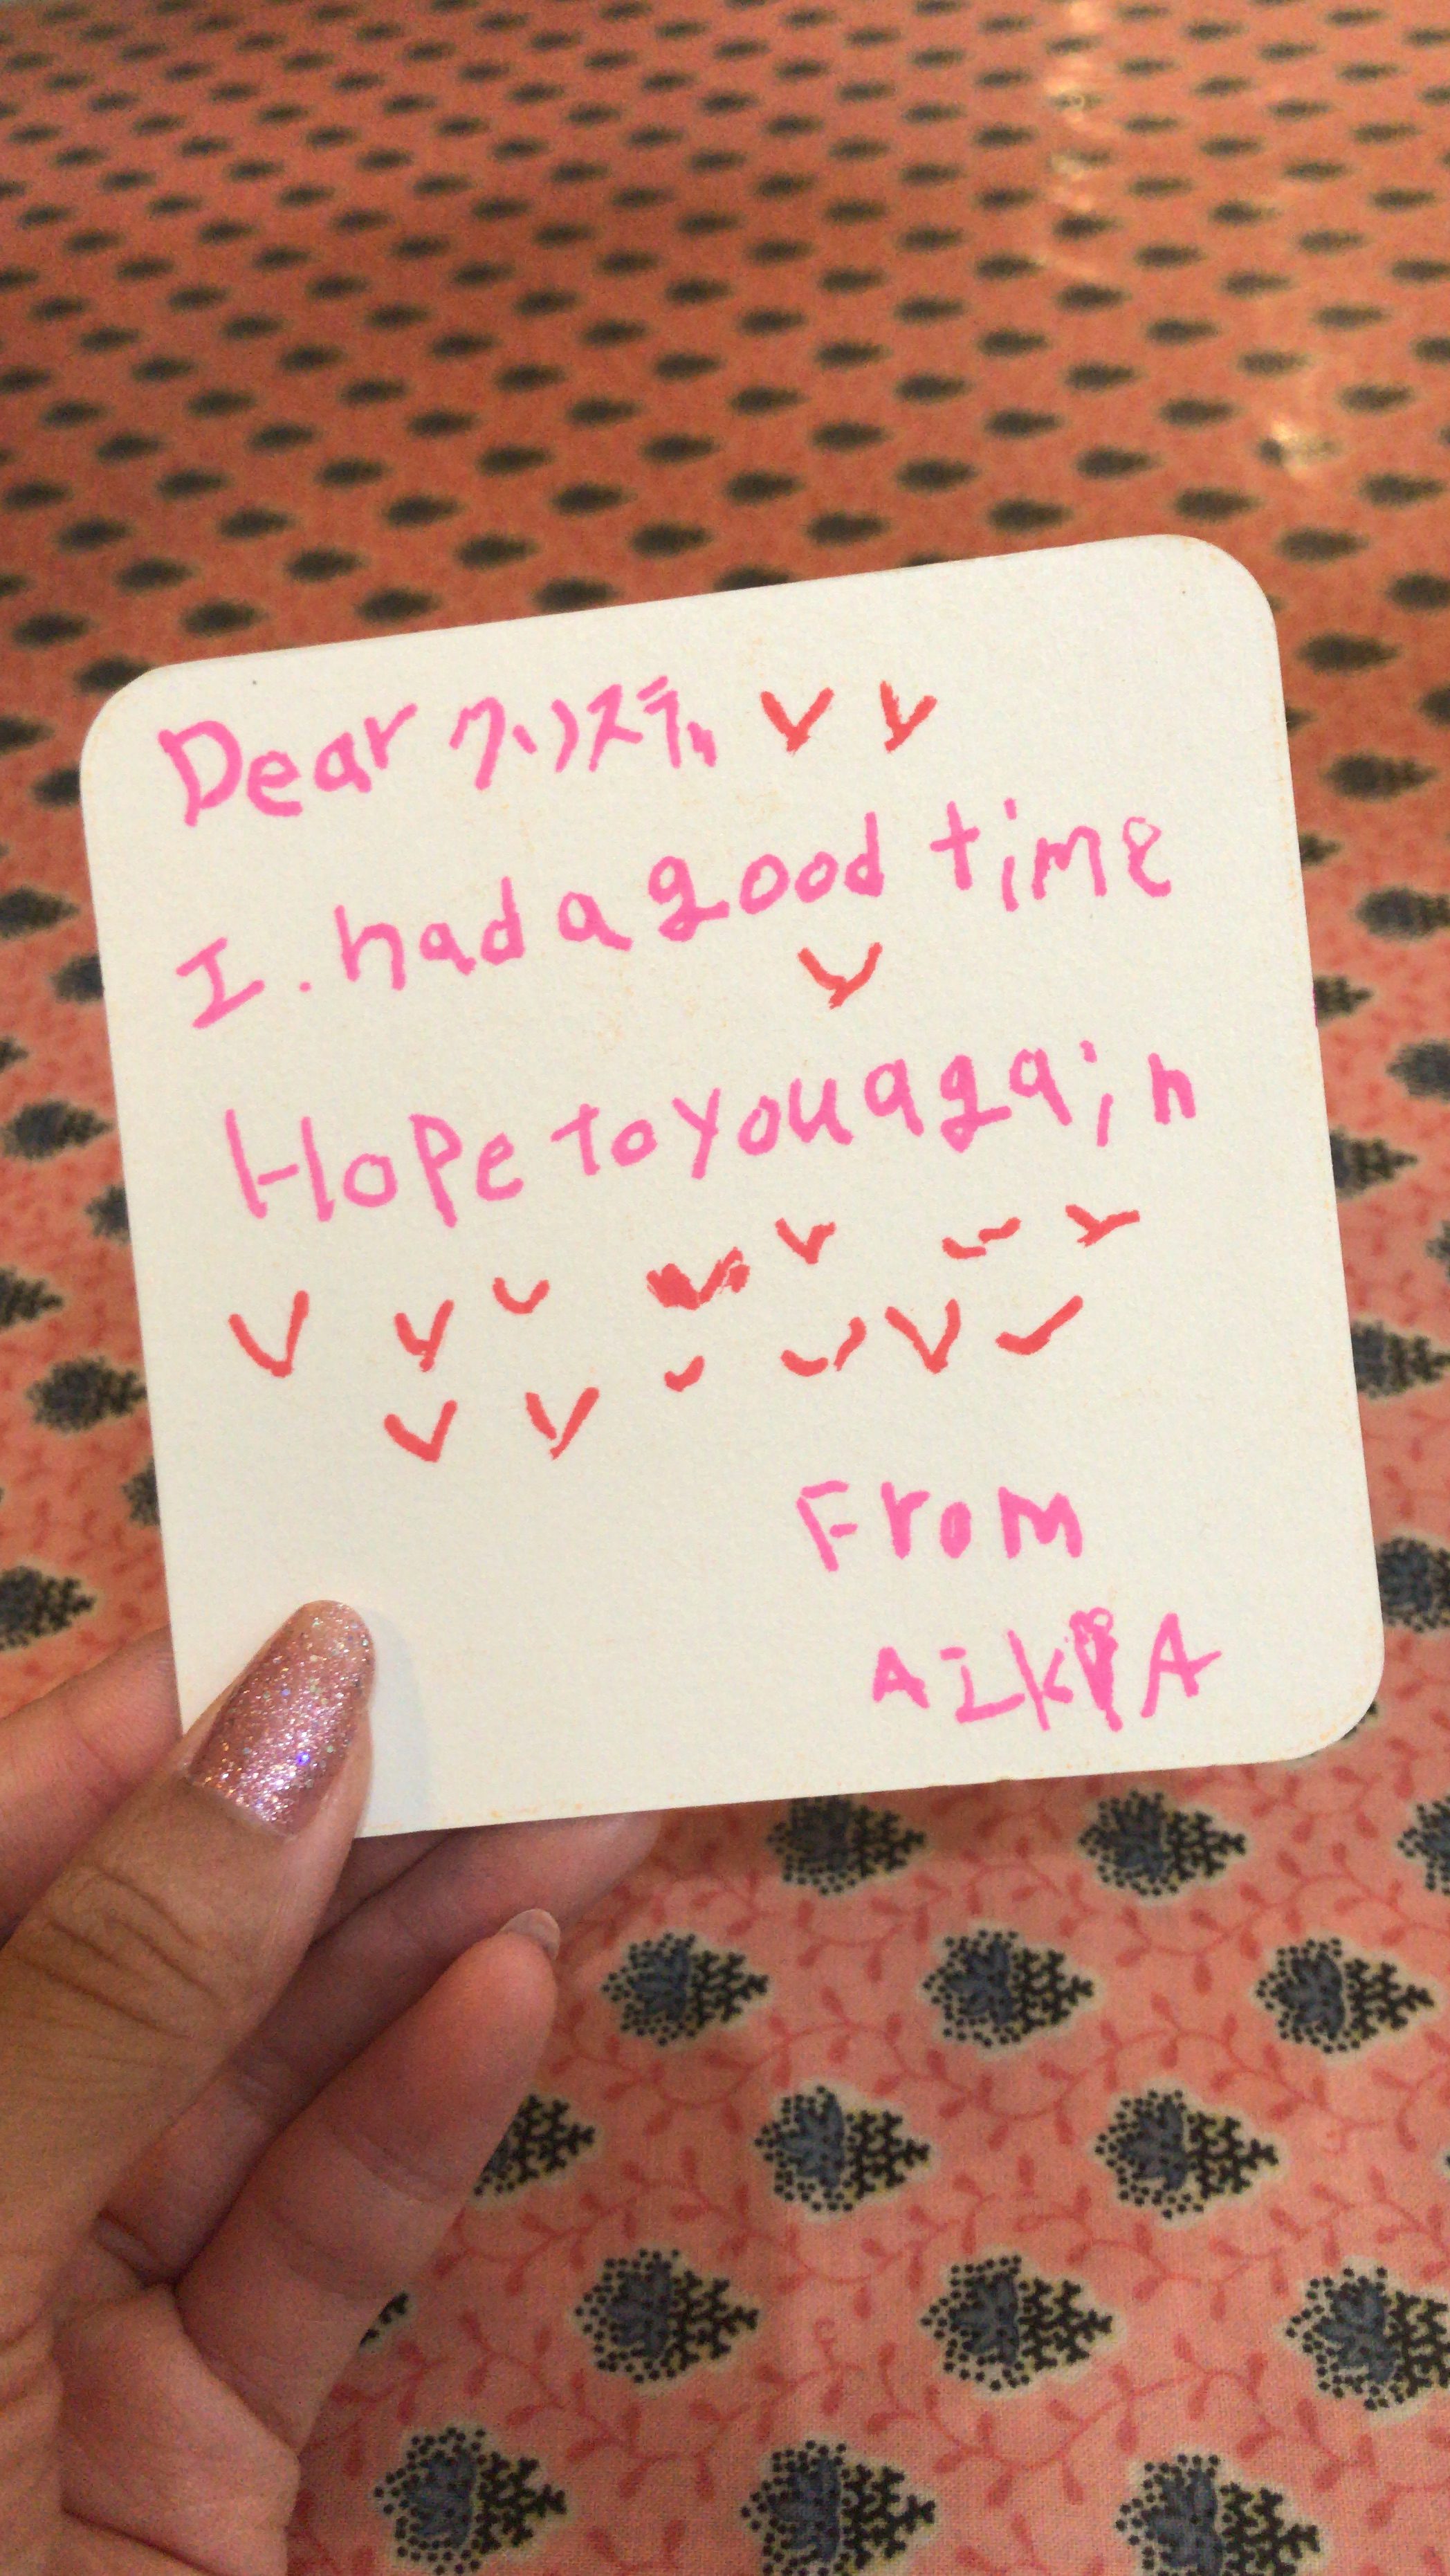 Dear クリスティ
I. had a good time
Hope to you again
From